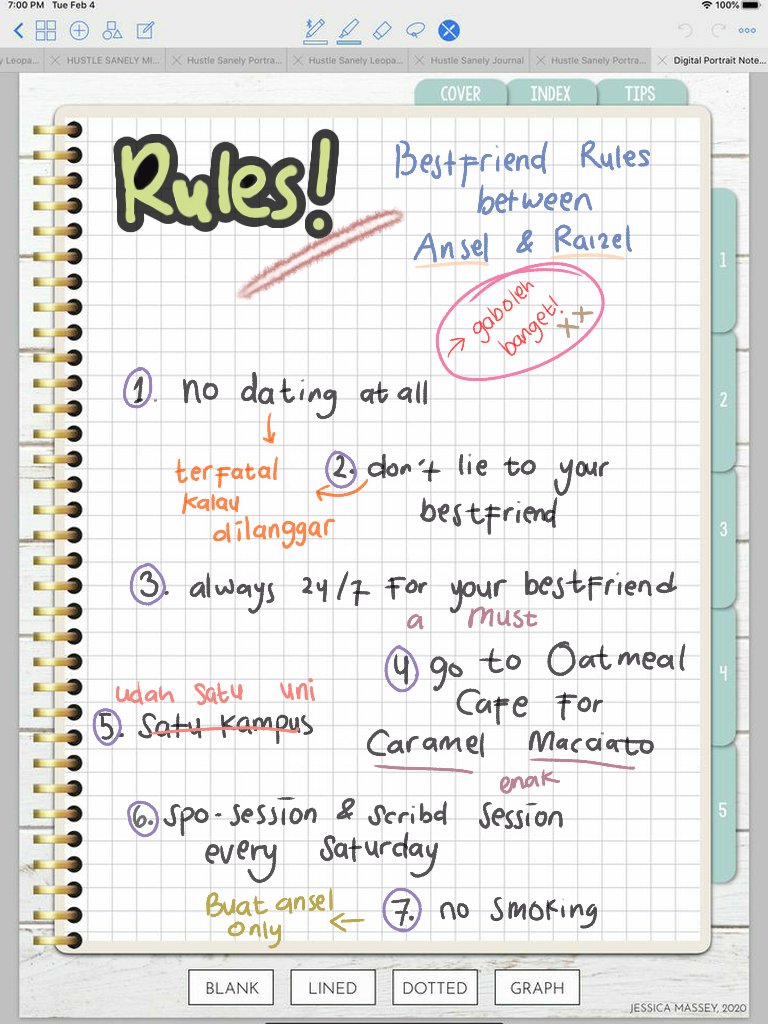 7:00 PM Tue Feb 4
100%
y Leopa...
HUSTLE SANELY MI...
Hustle Sanely Portra...
Hustle Sanely Leopa...
Hustle Sanely Journal
Hustle Sanely Portra...
Digital Portrait Note...
COVER
INDEX
TIPS
Rules!
Bestfriend Rules
between
Ansel & Raizel
→ gaboleh
banget! xx
1. no dating at all
terfatal
kalau
dilanggar
2. don't lie to your
bestfriend
3. always 24/7 for your bestfriend
a must
4 go to Oatmeal
Cafe for
Caramel Macciato
enak
udah satu uni
5. Satu kampus
6. spo-session & scribd session
every saturday
7. no smoking
Buat ansel
only
1
2
3
4
5
BLANK
LINED
DOTTED
GRAPH
JESSICA MASSEY, 2020